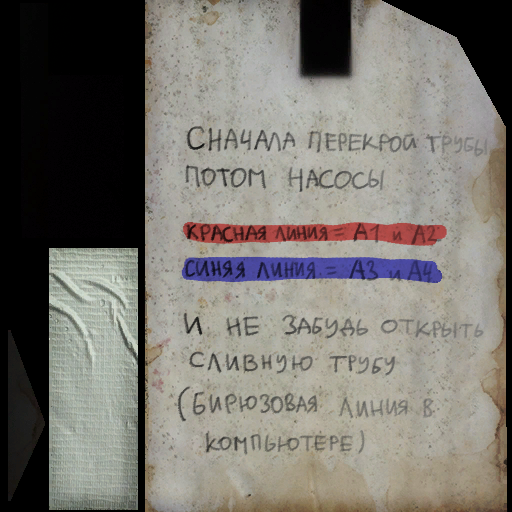 СНАЧАЛА ПЕРЕКРОЙ ТРУБЫ
ПОТОМ НАСОСЫ
КРАСНАЯ ЛИНИЯ = А1 и А2
СИНЯЯ ЛИНИЯ = А3 и А4
И НЕ ЗАБУДЬ ОТКРЫТЬ
СЛИВНУЮ ТРУБУ
(БИРЮЗОВАЯ ЛИНИЯ В
КОМПЬЮТЕРЕ)